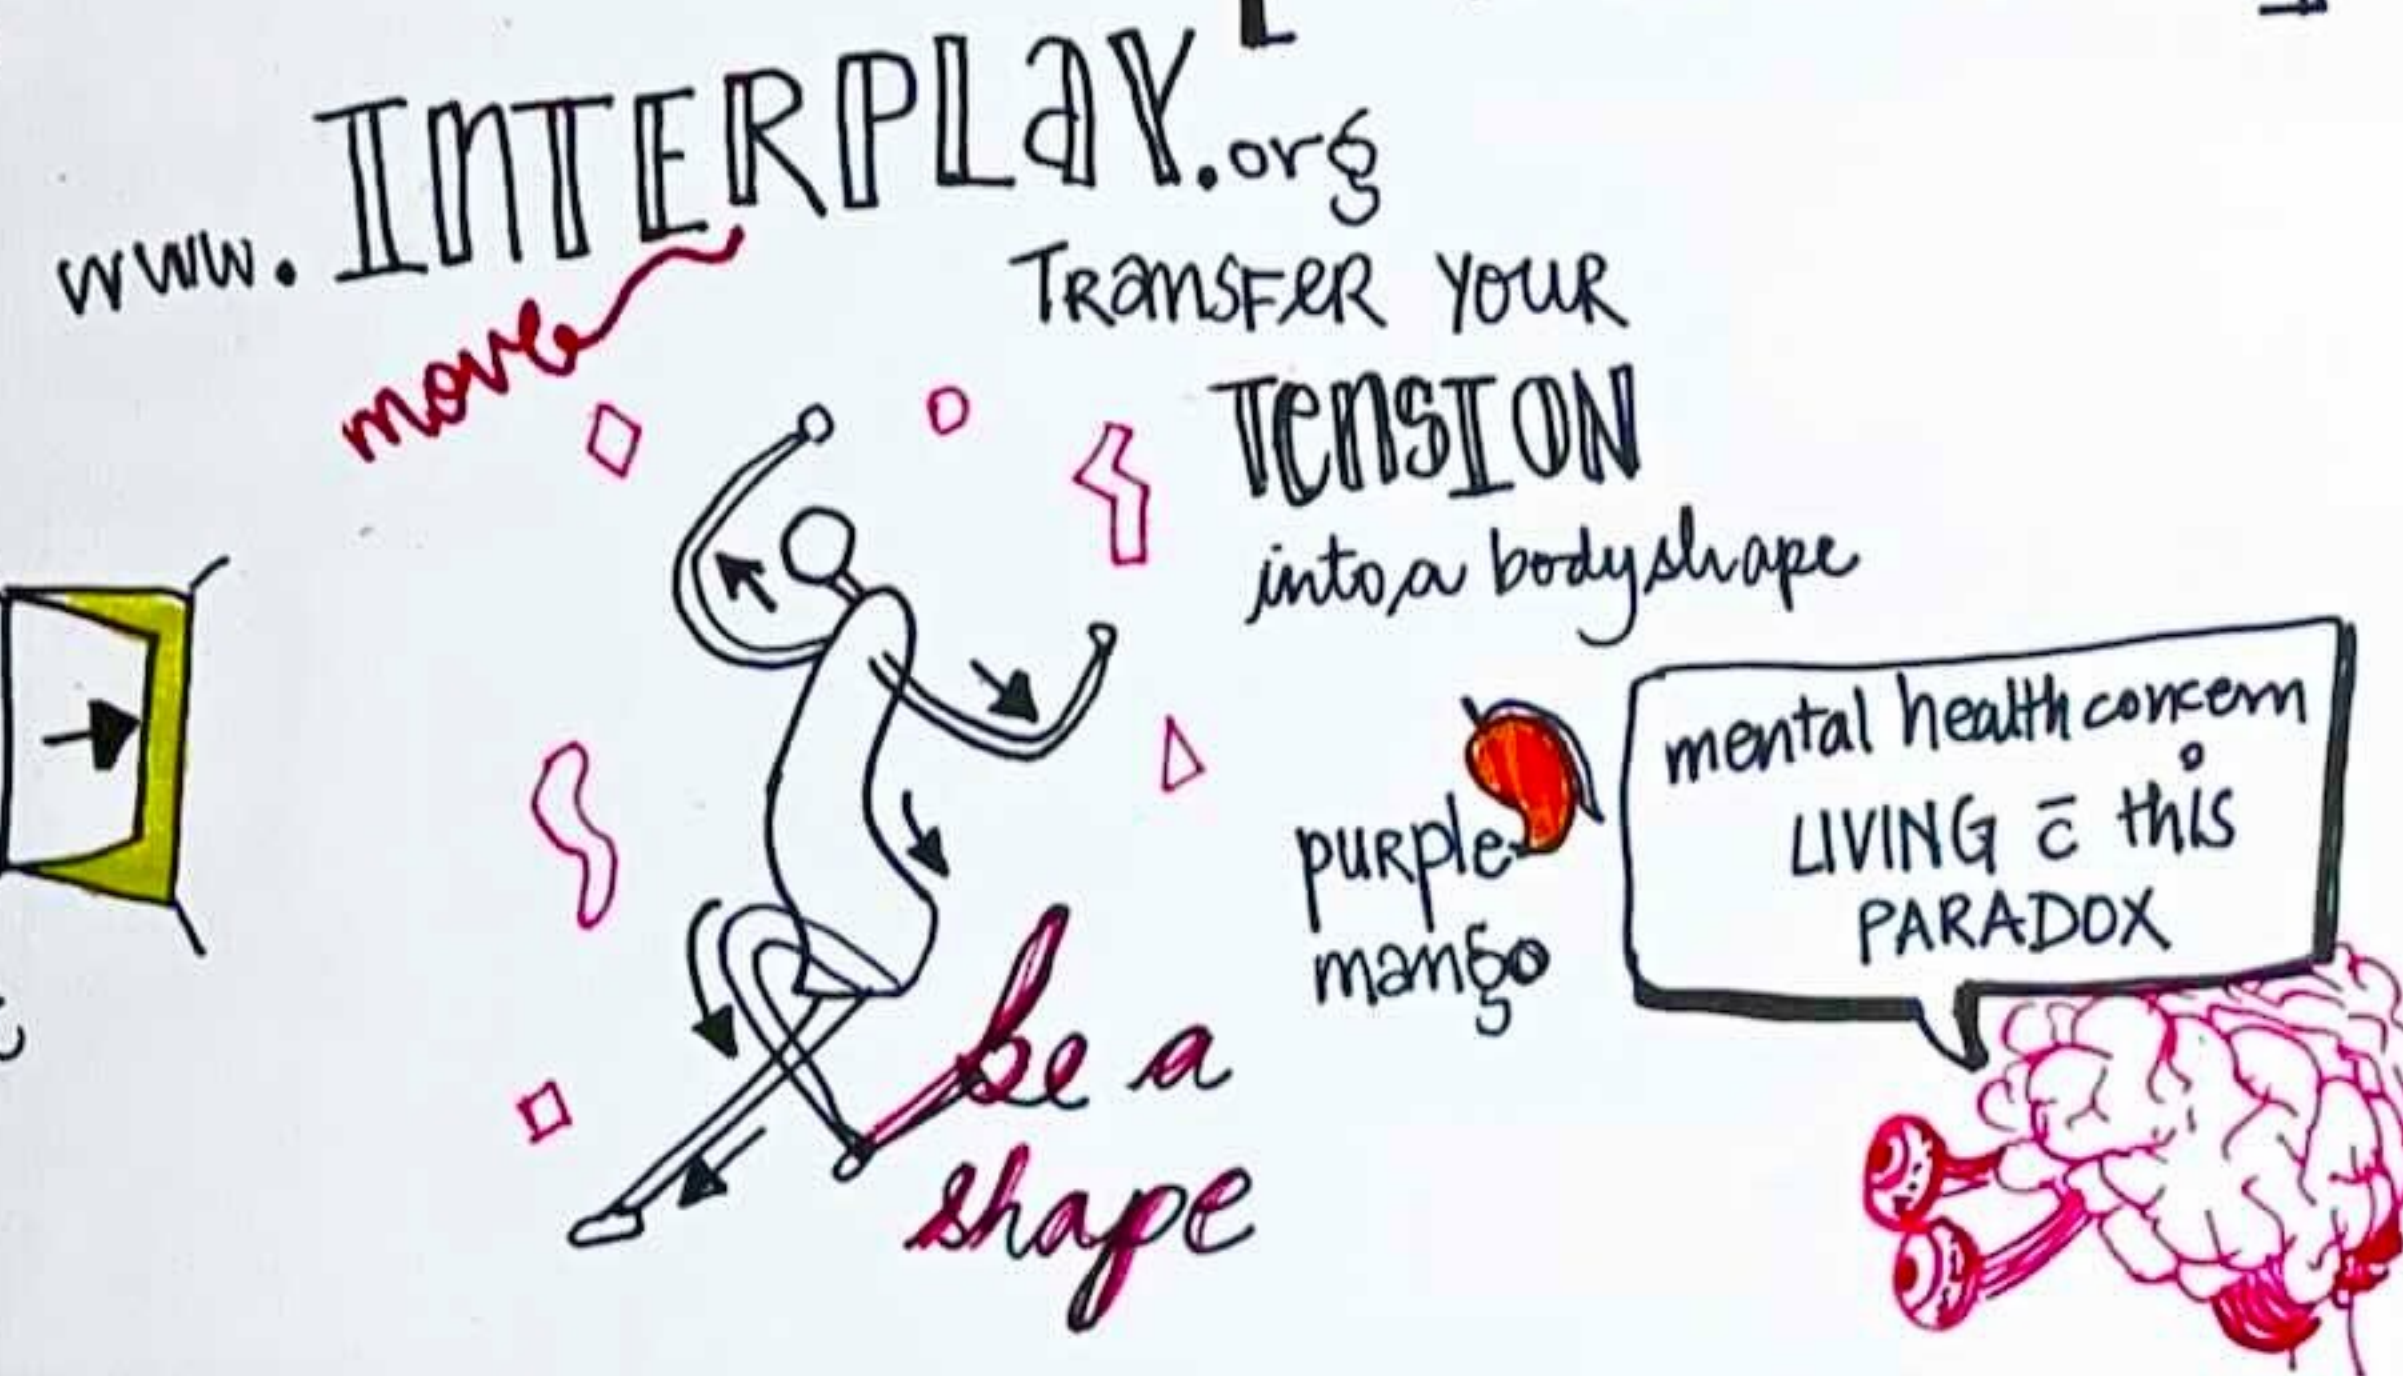 www.INTERPLAY.org
move
TRANSFER YOUR
TENSION
into a body shape
purple
mango
mental health concern
LIVING c̄ this
PARADOX
be a
shape